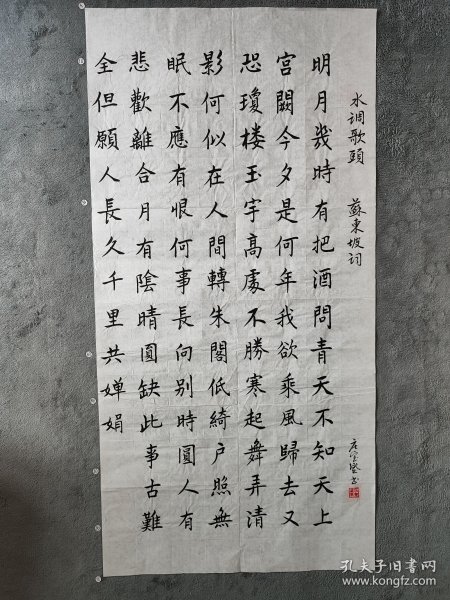 水调歌頭 蘇東坡詞
明月幾時有把酒問青天不知天上
宫闕今夕是何年我欲乘風歸去又
恐瓊楼玉宇高處不勝寒起舞弄清
影何似在人間轉朱閣低綺户照無
眠不應有恨何事長向别時圓人有
悲歡離合月有陰晴圓缺此事古難
全但願人長久千里共嬋娟
孔夫子旧书网
www.kongfz.com